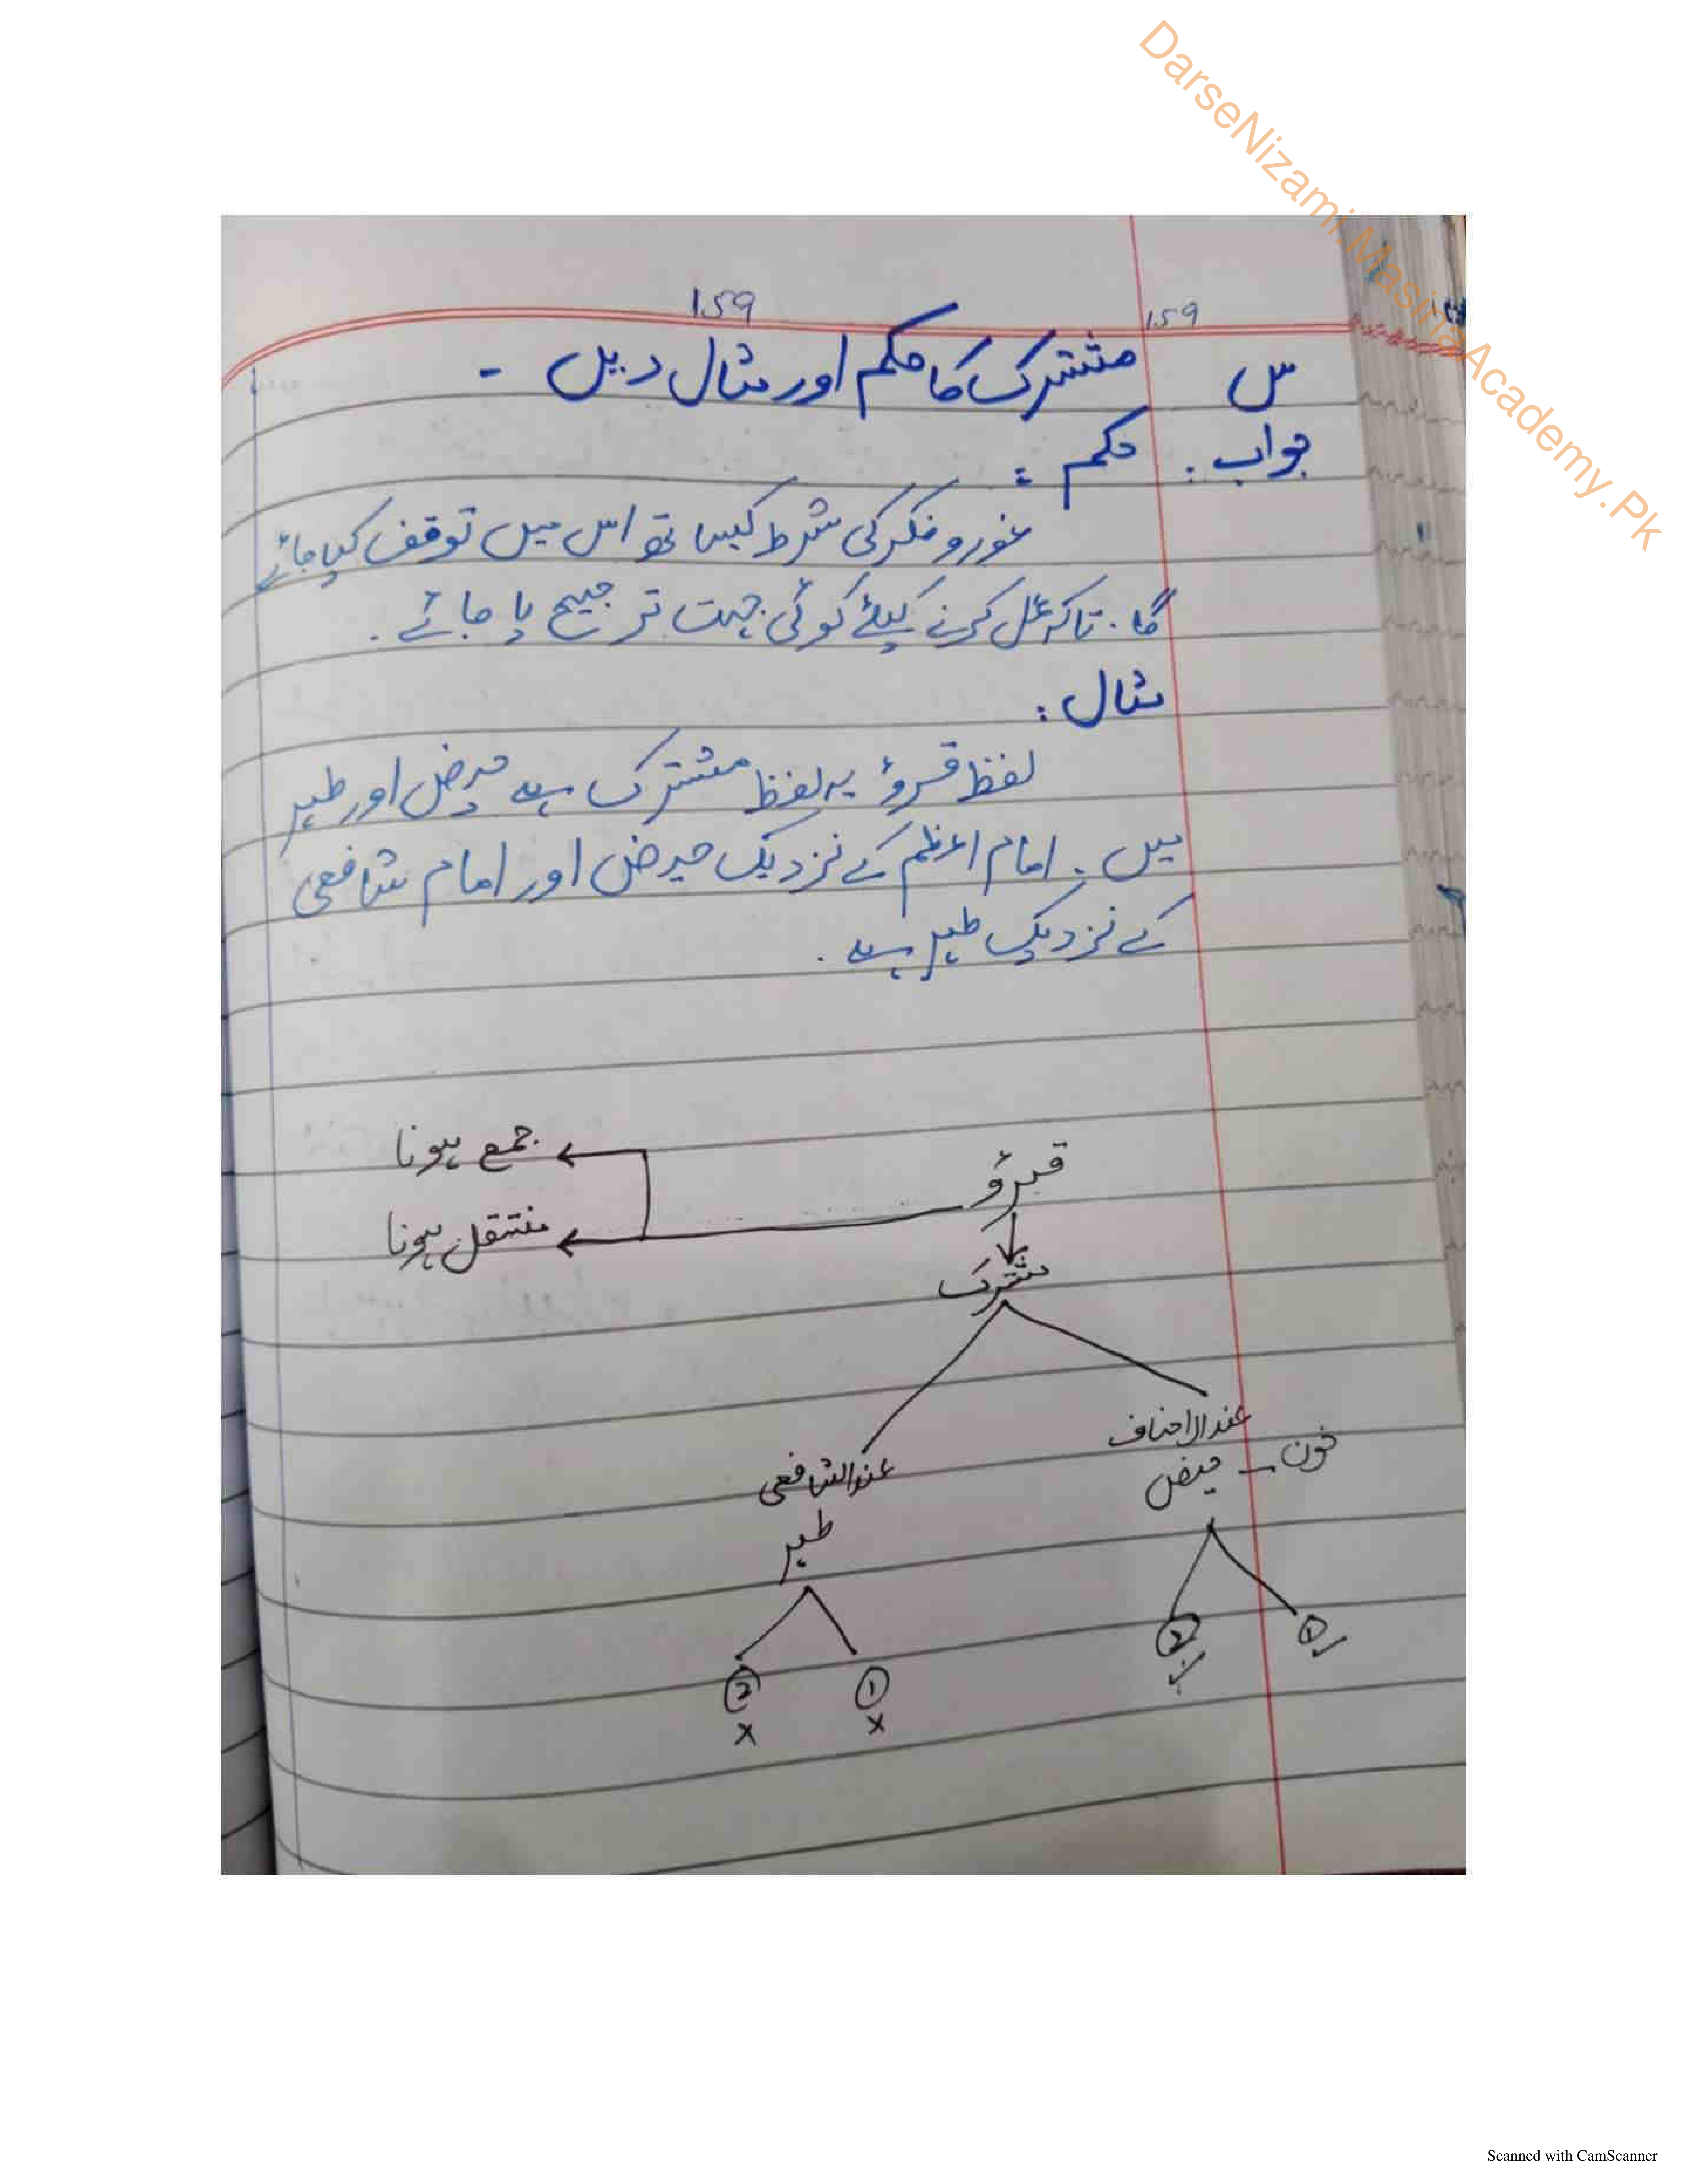 DarseNizami.MasiriaAcademy.Pk
159
159
س مشترک کا حکم اور مثال دیں ۔
جواب : حکم :
غور و فکر کی شرط کیساتھ اس میں توقف کیا جائے
گا . تاکہ عمل کرنے کیلئے کوئی جہت ترجیح پا جائے .
مثال :
لفظ قروءٔ یہ لفظ مشترک ہے حیض اور طہر
میں . امام اعظم کے نزدیک حیض اور امام شافعی
کے نزدیک طہر ہے .
جمع ہونا
قروءٔ
منتقل ہونا
مشترک
عند الاحناف
خون – حیض
عند الشافعی
طہر
① ②
① ②
x x
Scanned with CamScanner